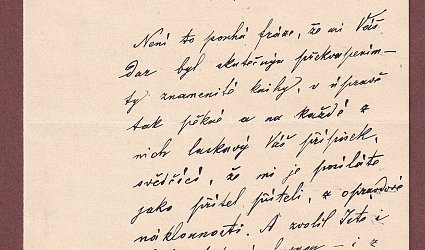 Není to pouhá fráze, že mi Váš
dar byl skutečným překvapením –
ty znamenité knihy, v úpravě
tak pěkné a na každé z
nich laskavý Váš přípisek,
svědčící, že mi je posíláte
jako přítel příteli, z opravdové
náklonnosti. A zvolil Jste i